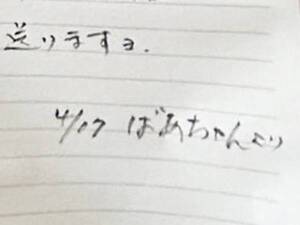 送りますヨ.
4/17 ばあちゃんより